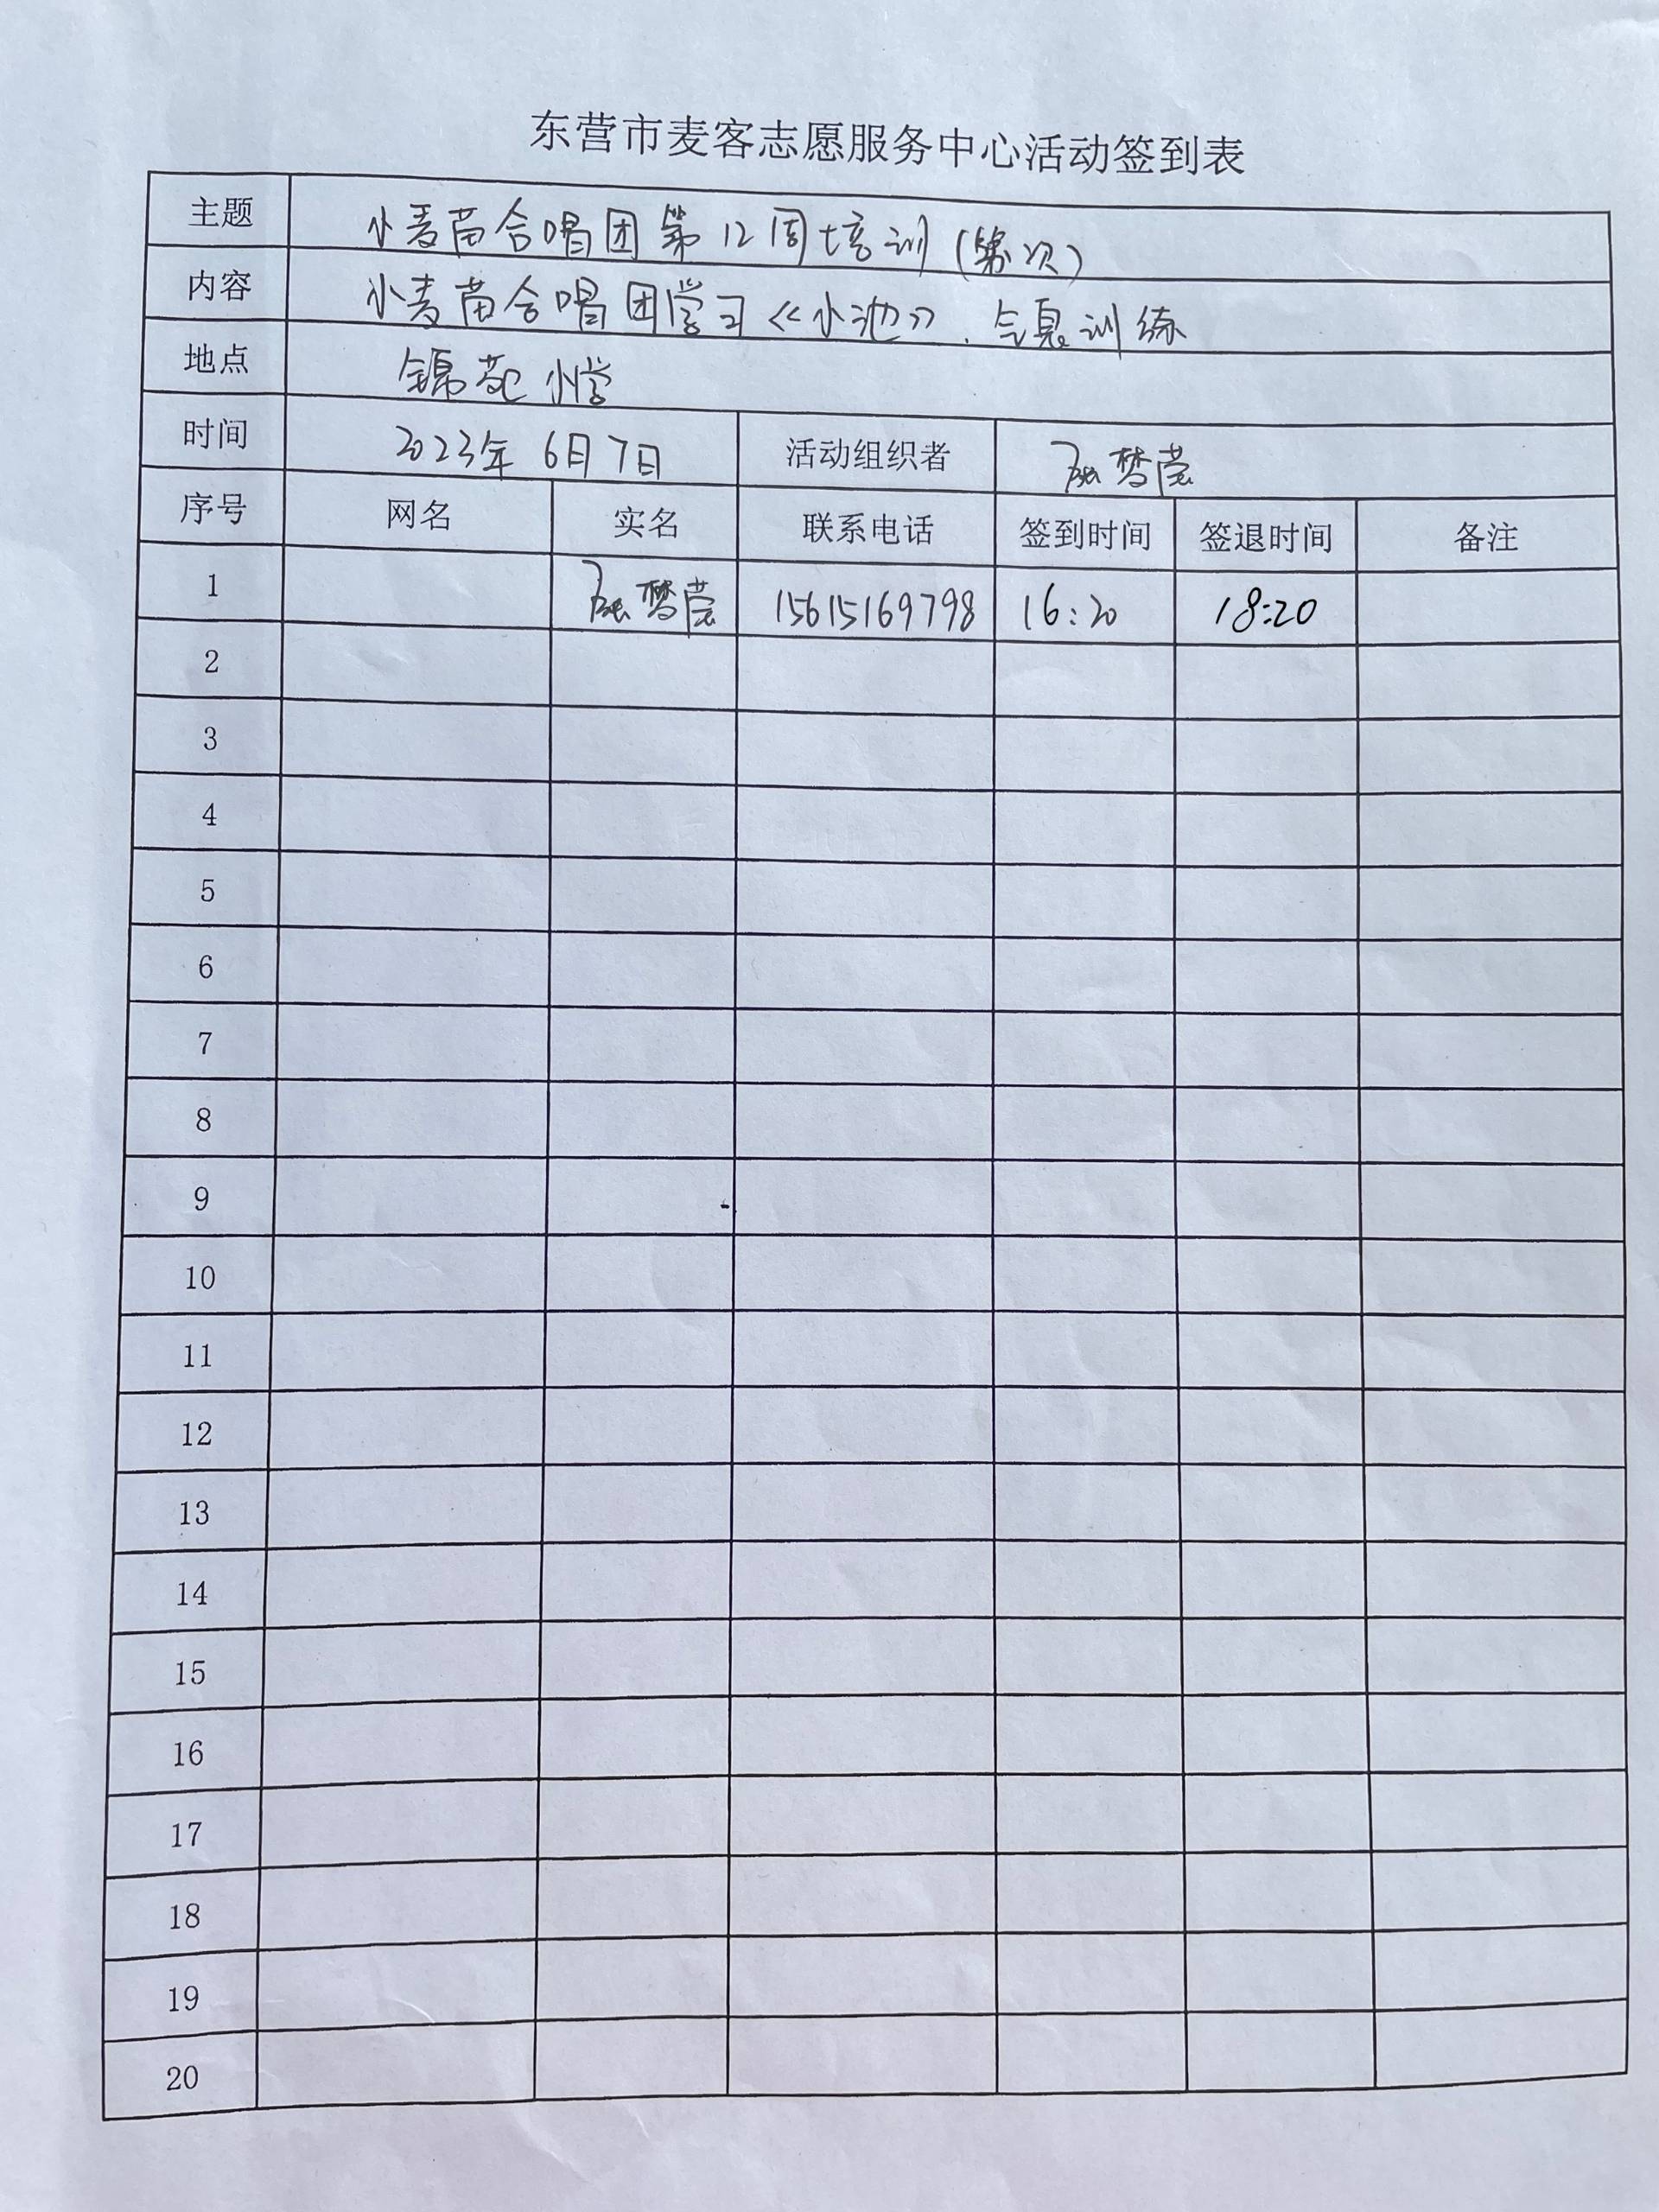 东营市麦客志愿服务中心活动签到表
主题 小麦苗合唱团第12周培训(第次)
内容 小麦苗合唱团学习《小池》、气息训练
地点 锦苑小学
时间 2023年6月7日 活动组织者 张梦莹
序号 网名 实名 联系电话 签到时间 签退时间 备注
1 张梦莹 15615169798 16:20 18:20
2
3
4
5
6
7
8
9
10
11
12
13
14
15
16
17
18
19
20